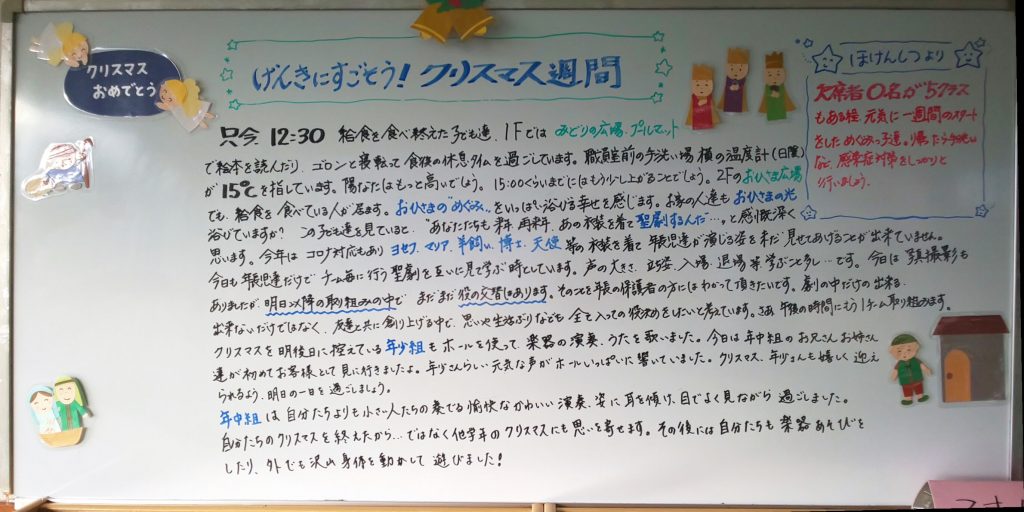 クリスマス
おめでとう
げんきにすごそう！クリスマス週間
ほけんしつより
欠席者0名が5クラス
もある程 元気に一週間のスタート
をした めぐみっ子達。帰ったら手洗い
など、感染症対策をしっかりと
行いましょう。
只今 12:30 給食を食べ終えた子ども達、1Fでは みどりの広場、プレイマット
で絵本を読んだり、ゴロンと寝転って食後の休息タイムを過ごしています。職員室前の手洗い場横の温度計(日陰)
が 15℃を指しています。陽なたはもっと高いでしょう。15:00くらいまでにはもう少し上がることでしょう。2Fのおひさま広場
でも、給食を食べている人が居ます。おひさまの"めぐみ"、をいっぱい浴びる幸せを感じます。お家の人達もおひさまの光
浴びていますか? この子ども達を見ていると、"あなたたちも 再来年、あの衣装を着て聖劇するんだ…"と感慨深く
思います。今年は コロナ対応もあり ヨセフ、マリア、羊飼い、博士、天使 等の衣装を着て 年長児達が演じる姿を未だ見せてあげることが出来ていません。
今日も年長児達だけで チーム毎に行う聖劇を互いに見て学ぶ時としています。声の大きさ、立ち姿、入場、退場 等 学ぶこと多し…です。今日は 写真撮影も
ありましたが、明日以降の取り組みの中で まだまだ役の交替はあります。そのことを年長の保護者の方にはわかって頂きたいです。劇の中だけの出来る
出来ないだけではなく、友達と共に創り上げる中で、思いや生活ぶりなども 全て入っての役決めをしたいと考えています。さあ 午後の時間にもう1チーム取り組みます。
クリスマスを明後日に控えている 年少組もホールを使って、楽器の演奏、うたを歌いました。今日は年中組の お兄さんお姉さん
達が初めてお客様として見に行きましたよ。年少さんらしい元気な声がホールいっぱいに響いていました。クリスマス、年少さんも嬉しく迎え
られるよう、明日の一日を過ごしましょう。
年中組は 自分たちよりも小さい人たちの奏でる愉快なかわいい演奏、姿に耳を傾け、目でよく見ながら 過ごしました。
自分たちのクリスマスを終えたから…ではなく他学年のクリスマスにも思いを寄せます。その後には自分たちも 楽器あそびを
したり、外でも沢山 身体を動かして 遊びました!